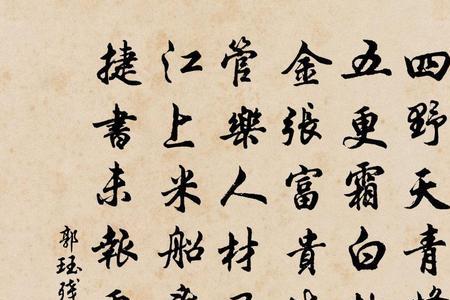 四野天青
五更霜白
金張富貴
管樂人材
江上米船
捷書未報
郭珏残